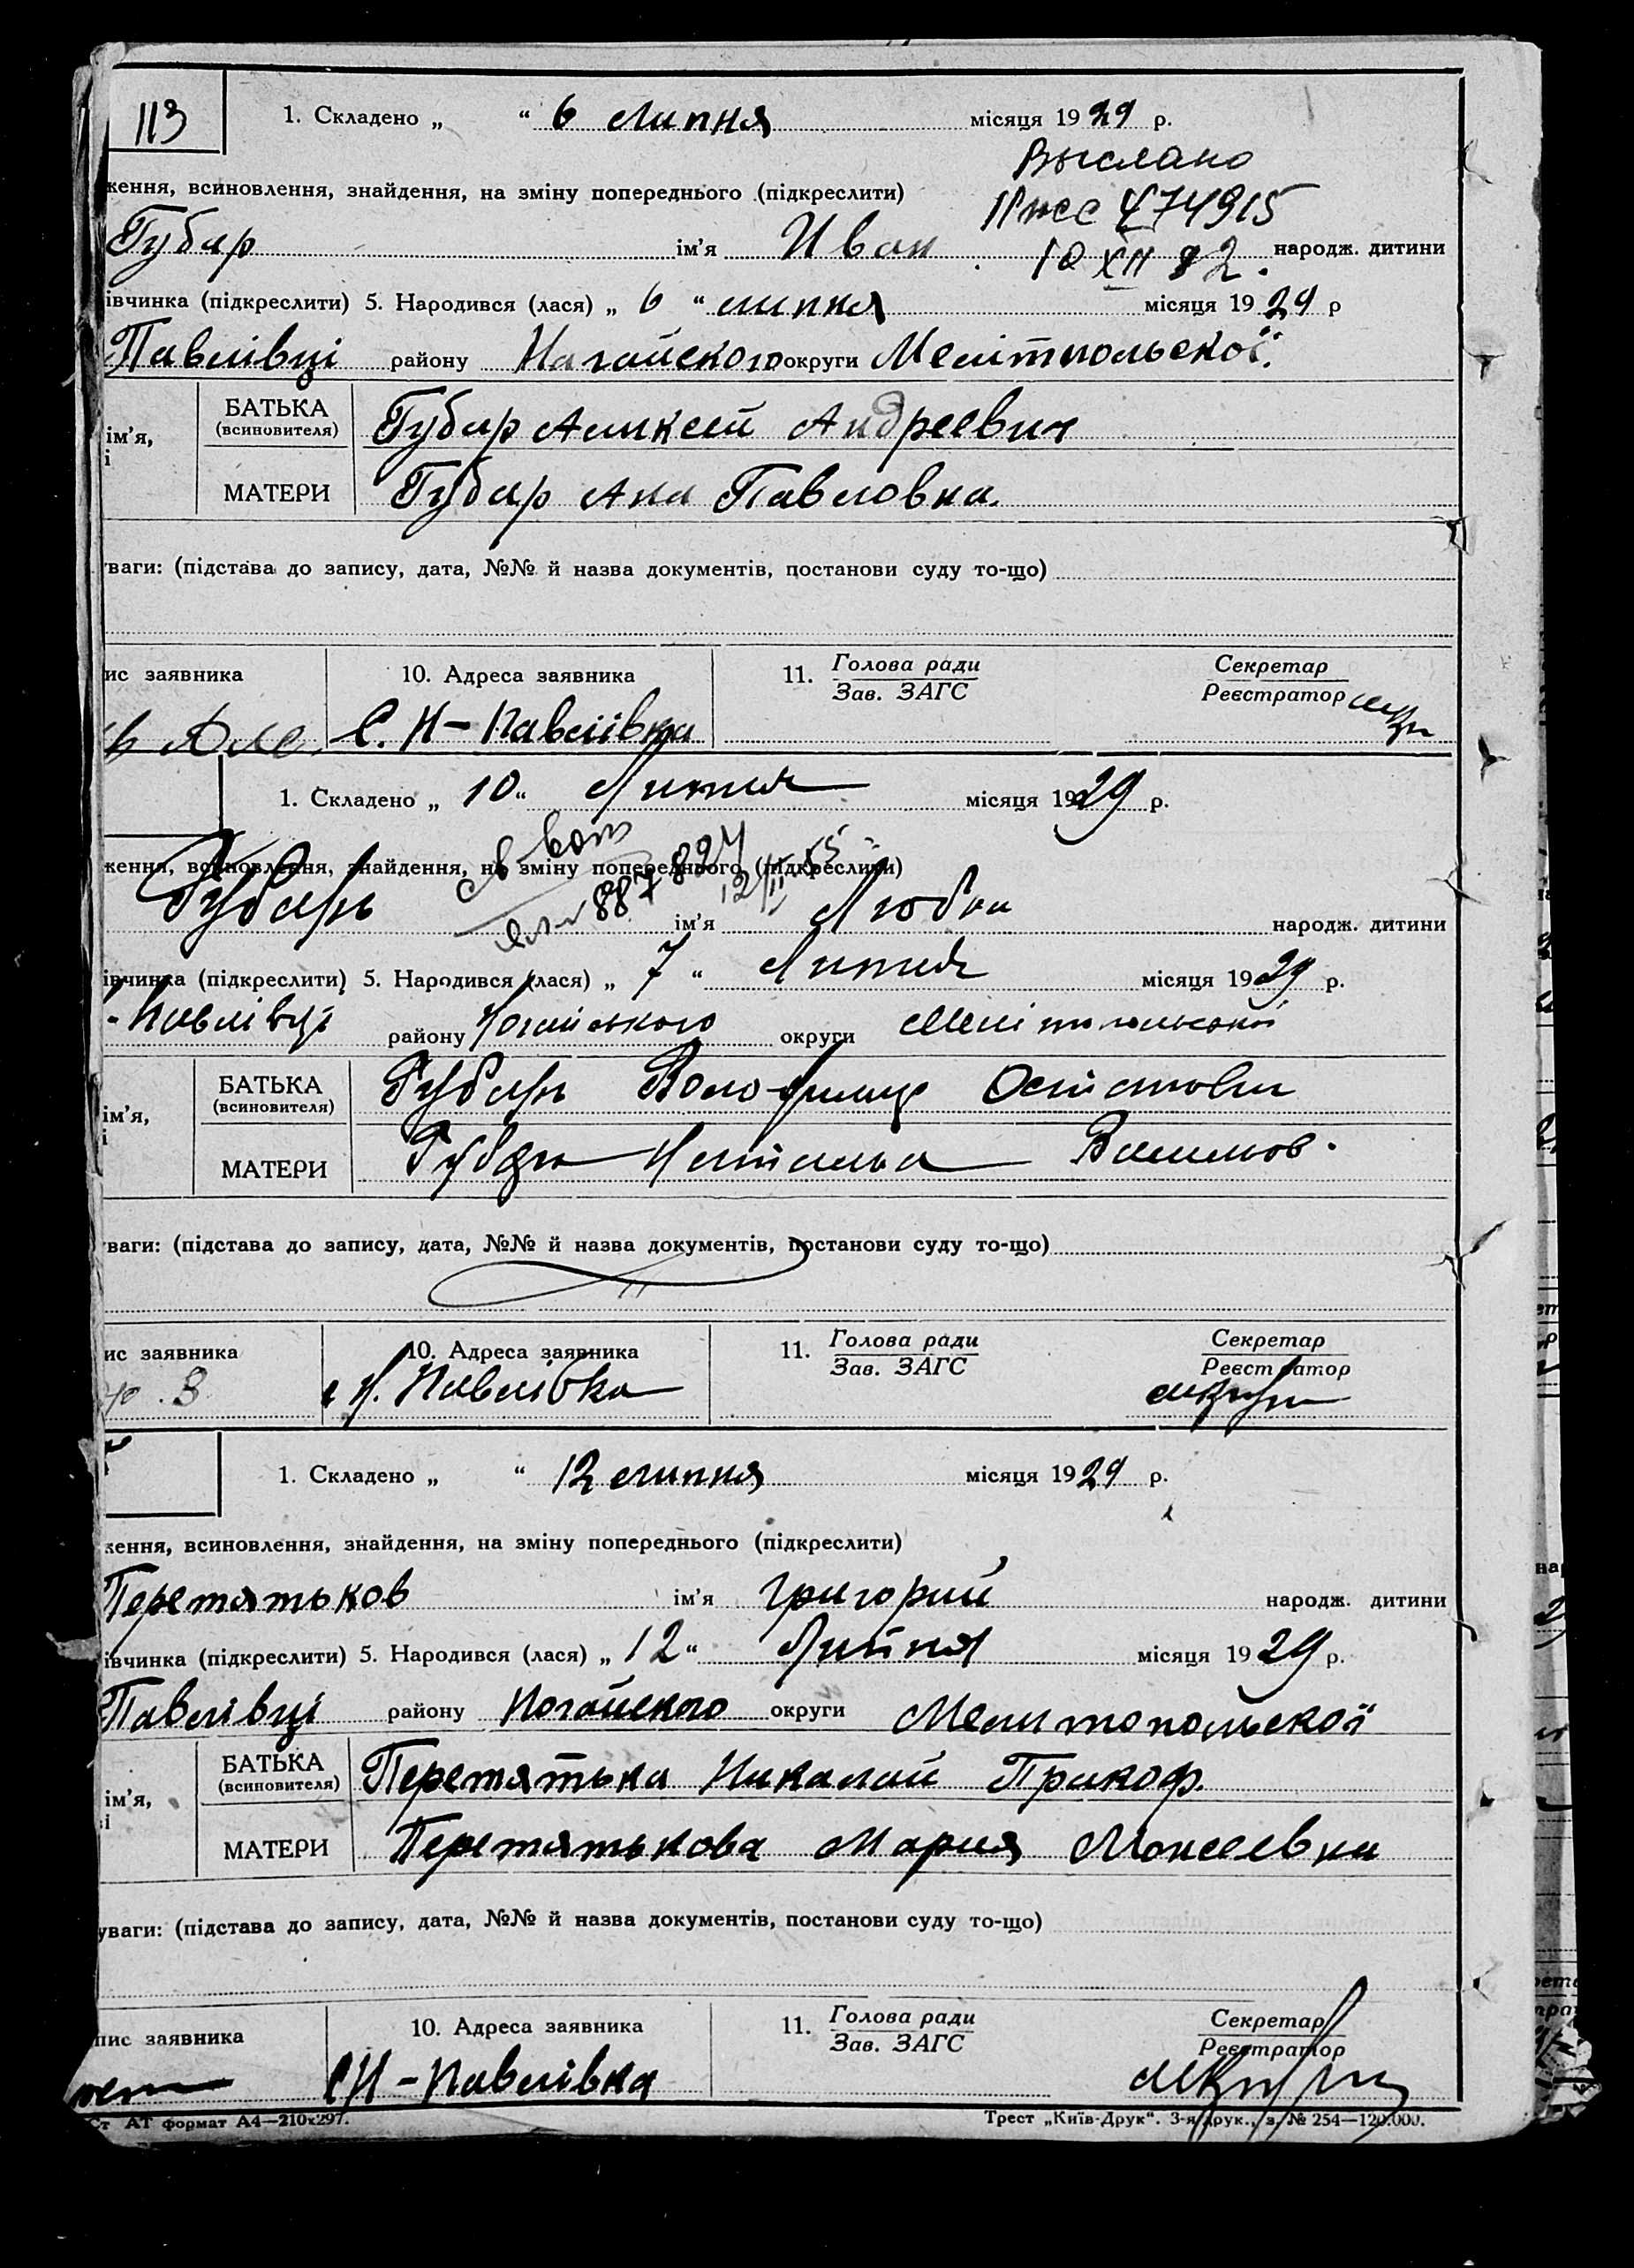 113
1. Складено „ “ 6 Липня місяця 1929 р.
Выслано
ження, всиновлення, знайдення, на зміну попереднього (підкреслити)
474915
Губар ім’я Иван 10 XII 82. народж. дитини
івчинка (підкреслити) 5. Народився (лася) „ 6 “ липня місяця 1929 р
Павлівці району Нагайского округи Мелітпольскої.
ім’я,
і
БАТЬКА
(всиновителя)
Губар Аликсей Андреевич
МАТЕРИ
Губар Ана Павловна.
ваги: (підстава до запису, дата, №№ й назва документів, постанови суду то-що)
ис заявника
10. Адреса заявника
11. Голова ради
Зав. ЗАГС
Секретар
Реєстратор
С. Н-Павлівка
1. Складено „ 10 “ Липня місяця 1929 р.
ження, всиновлення, знайдення, на зміну попереднього (підкреслити)
887824
Губарь ім’я Любов народж. дитини
івчинка (підкреслити) 5. Народився (лася) „ 7 “ Липня місяця 1929 р.
-Павлівці району Ногайського округи Мелітопольської
ім’я,
і
БАТЬКА
(всиновителя)
Губарь Володимир Остапович
МАТЕРИ
Губарь Наталья
ваги: (підстава до запису, дата, №№ й назва документів, постанови суду то-що)
ис заявника
10. Адреса заявника
11. Голова ради
Зав. ЗАГС
Секретар
Реєстратор
Н. Павлівка
1. Складено „ “ 12 липня місяця 1929 р.
ження, всиновлення, знайдення, на зміну попереднього (підкреслити)
Перетятьков ім’я Григорий народж. дитини
івчинка (підкреслити) 5. Народився (лася) „ 12 “ Липня місяця 1929 р.
Павлівці району Ногайского округи Мелитопольскої
ім’я,
і
БАТЬКА
(всиновителя)
Перетятька Никалай Прикоф.
МАТЕРИ
Перетятькова Мария Моисеевна
уваги: (підстава до запису, дата, №№ й назва документів, постанови суду то-що)
пис заявника
10. Адреса заявника
11. Голова ради
Зав. ЗАГС
Секретар
Реєстратор
СН-Павлівка
Ст АТ формат А4—210х297.
Трест „Київ-Друк“. 3-я друк., з. № 254—120.000.